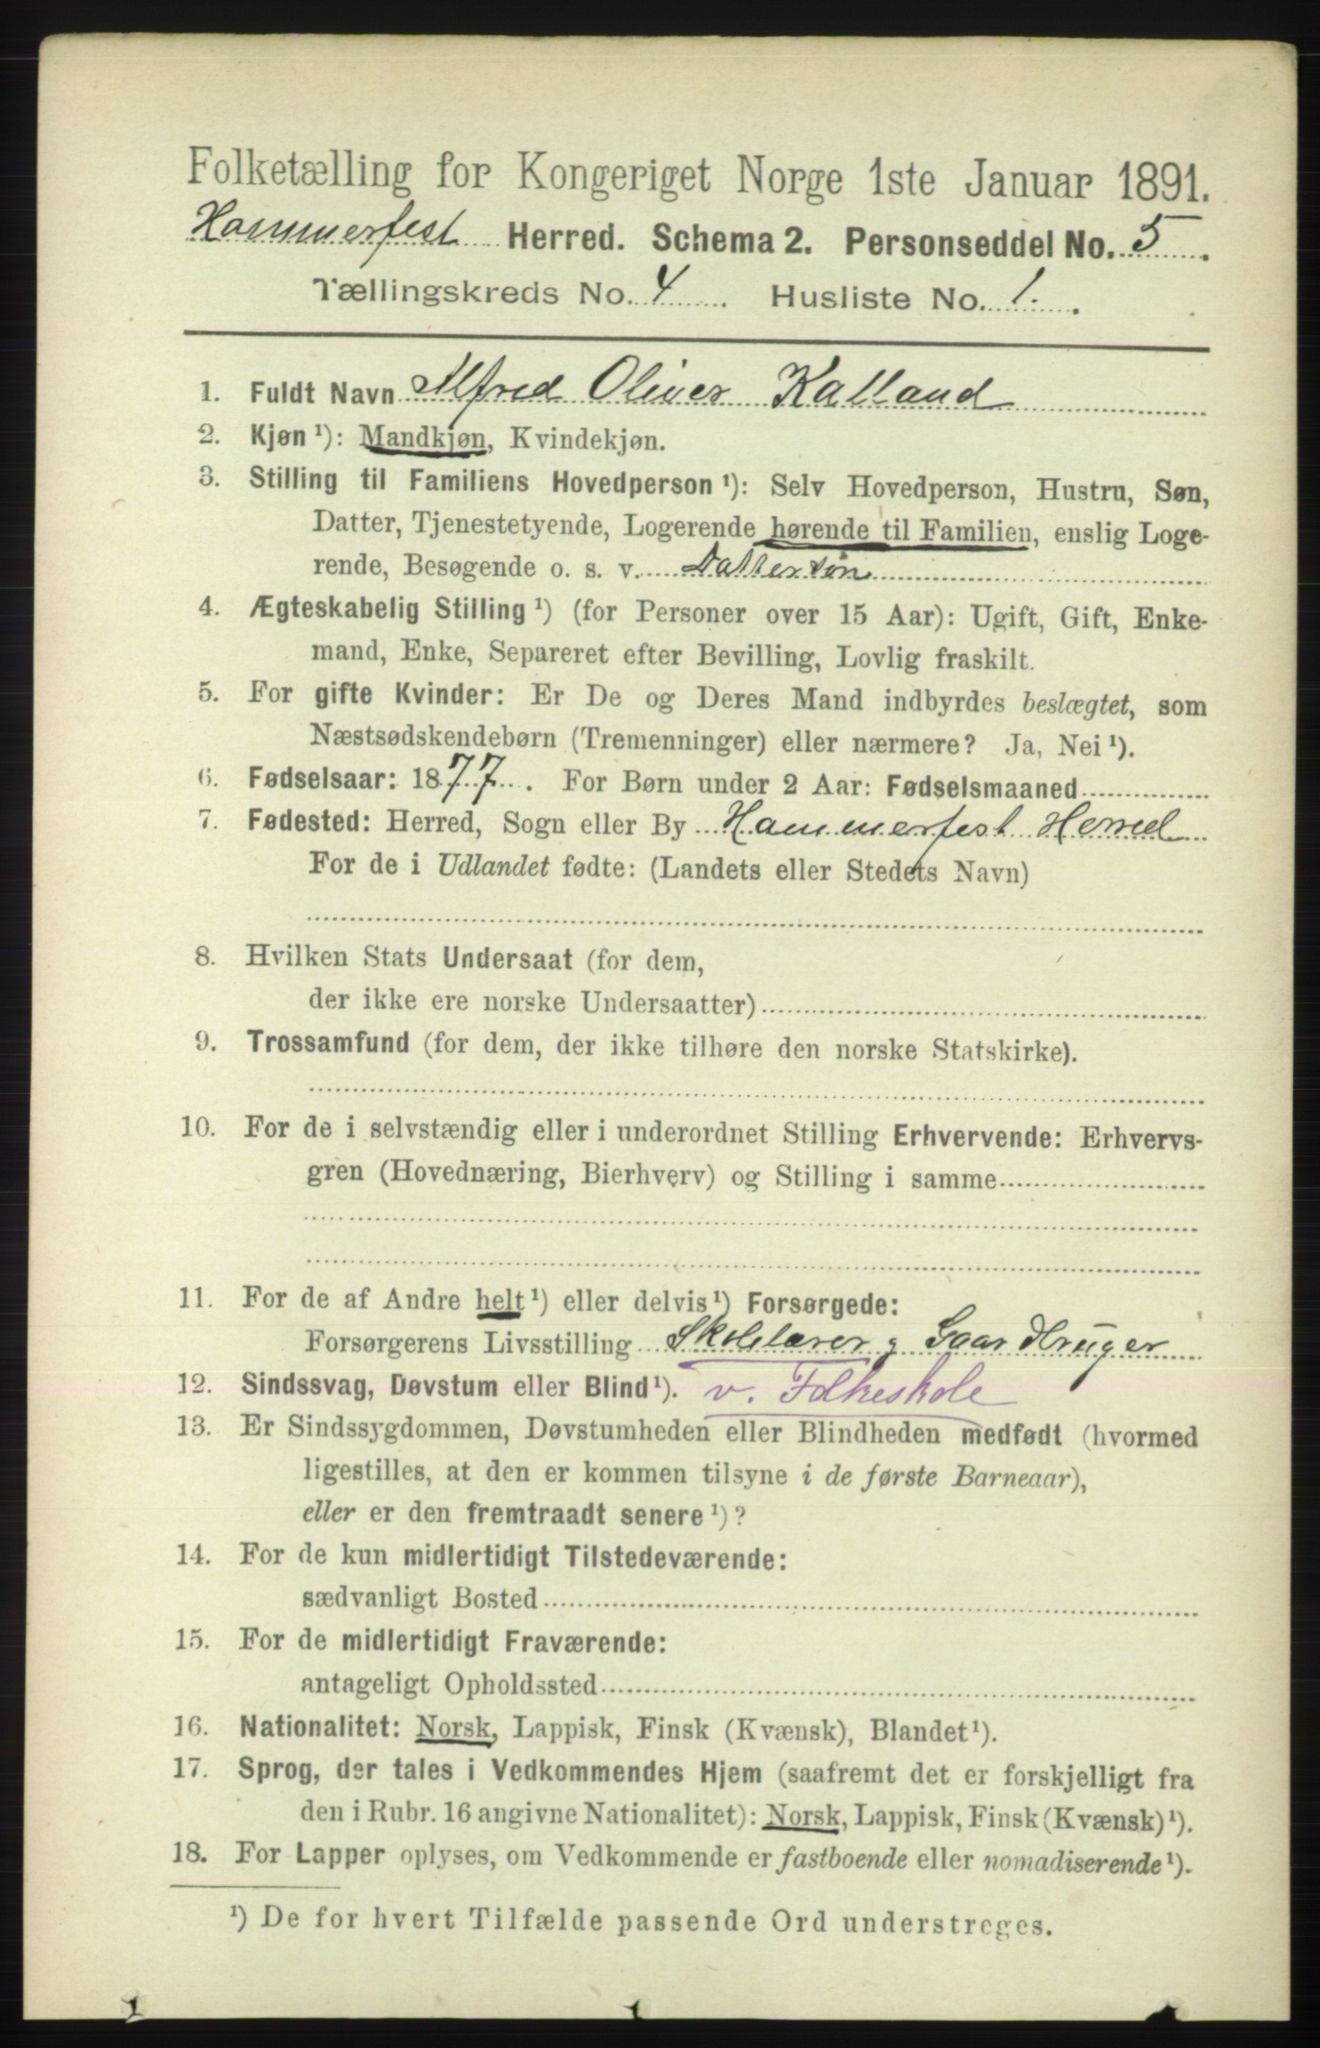 Folketælling for Kongeriget Norge 1ste Januar 1891.
Hammerfest Herred. Schema 2. Personseddel No. 5.
Tællingskreds No. 4. Husliste No. 1.
1. Fuldt Navn Alfred Oliver Kalland
2. Kjøn¹): Mandkjøn, Kvindekjøn.
3. Stilling til Familiens Hovedperson¹): Selv Hovedperson, Hustru, Søn,
Datter, Tjenestetyende, Logerende hørende til Familien, enslig Loge-
rende, Besøgende o. s. v. Dattersøn
4. Ægteskabelig Stilling¹) (for Personer over 15 Aar): Ugift, Gift, Enke-
mand, Enke, Separeret efter Bevilling, Lovlig fraskilt.
5. For gifte Kvinder: Er De og Deres Mand indbyrdes beslægtet, som
Næstsødskendebørn (Tremenninger) eller nærmere? Ja, Nei¹).
6. Fødselsaar: 1877. For Børn under 2 Aar: Fødselsmaaned
7. Fødested: Herred, Sogn eller By Hammerfest Herred
For de i Udlandet fødte: (Landets eller Stedets Navn)
8. Hvilken Stats Undersaat (for dem,
der ikke ere norske Undersaatter)
9. Trossamfund (for dem, der ikke tilhøre den norske Statskirke).
10. For de i selvstændig eller i underordnet Stilling Erhvervende: Erhvervs-
gren (Hovednæring, Bierhverv) og Stilling i samme
11. For de af Andre helt¹) eller delvis¹) Forsørgede:
Forsørgerens Livsstilling Skolelærer g Gaardbruger
12. Sindssvag, Døvstum eller Blind¹). v. Folkeskole
13. Er Sindssygdommen, Døvstumheden eller Blindheden medfødt (hvormed
ligestilles, at den er kommen tilsyne i de første Barneaar),
eller er den fremtraadt senere¹)?
14. For de kun midlertidigt Tilstedeværende:
sædvanligt Bosted
15. For de midlertidigt Fraværende:
antageligt Opholdssted
16. Nationalitet: Norsk, Lappisk, Finsk (Kvænsk), Blandet¹).
17. Sprog, der tales i Vedkommendes Hjem (saafremt det er forskjelligt fra
den i Rubr. 16 angivne Nationalitet): Norsk, Lappisk, Finsk (Kvænsk)¹).
18. For Lapper oplyses, om Vedkommende er fastboende eller nomadiserende¹).
¹) De for hvert Tilfælde passende Ord understreges.